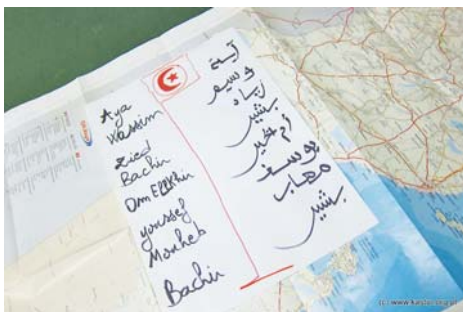 Aya
Wassim
Zied
Bachir
Om Elkhir
youssef
Mouheb
Bachir
آية
وسيم
زياد
بشير
أم الخير
يوسف
مهاب
بشير